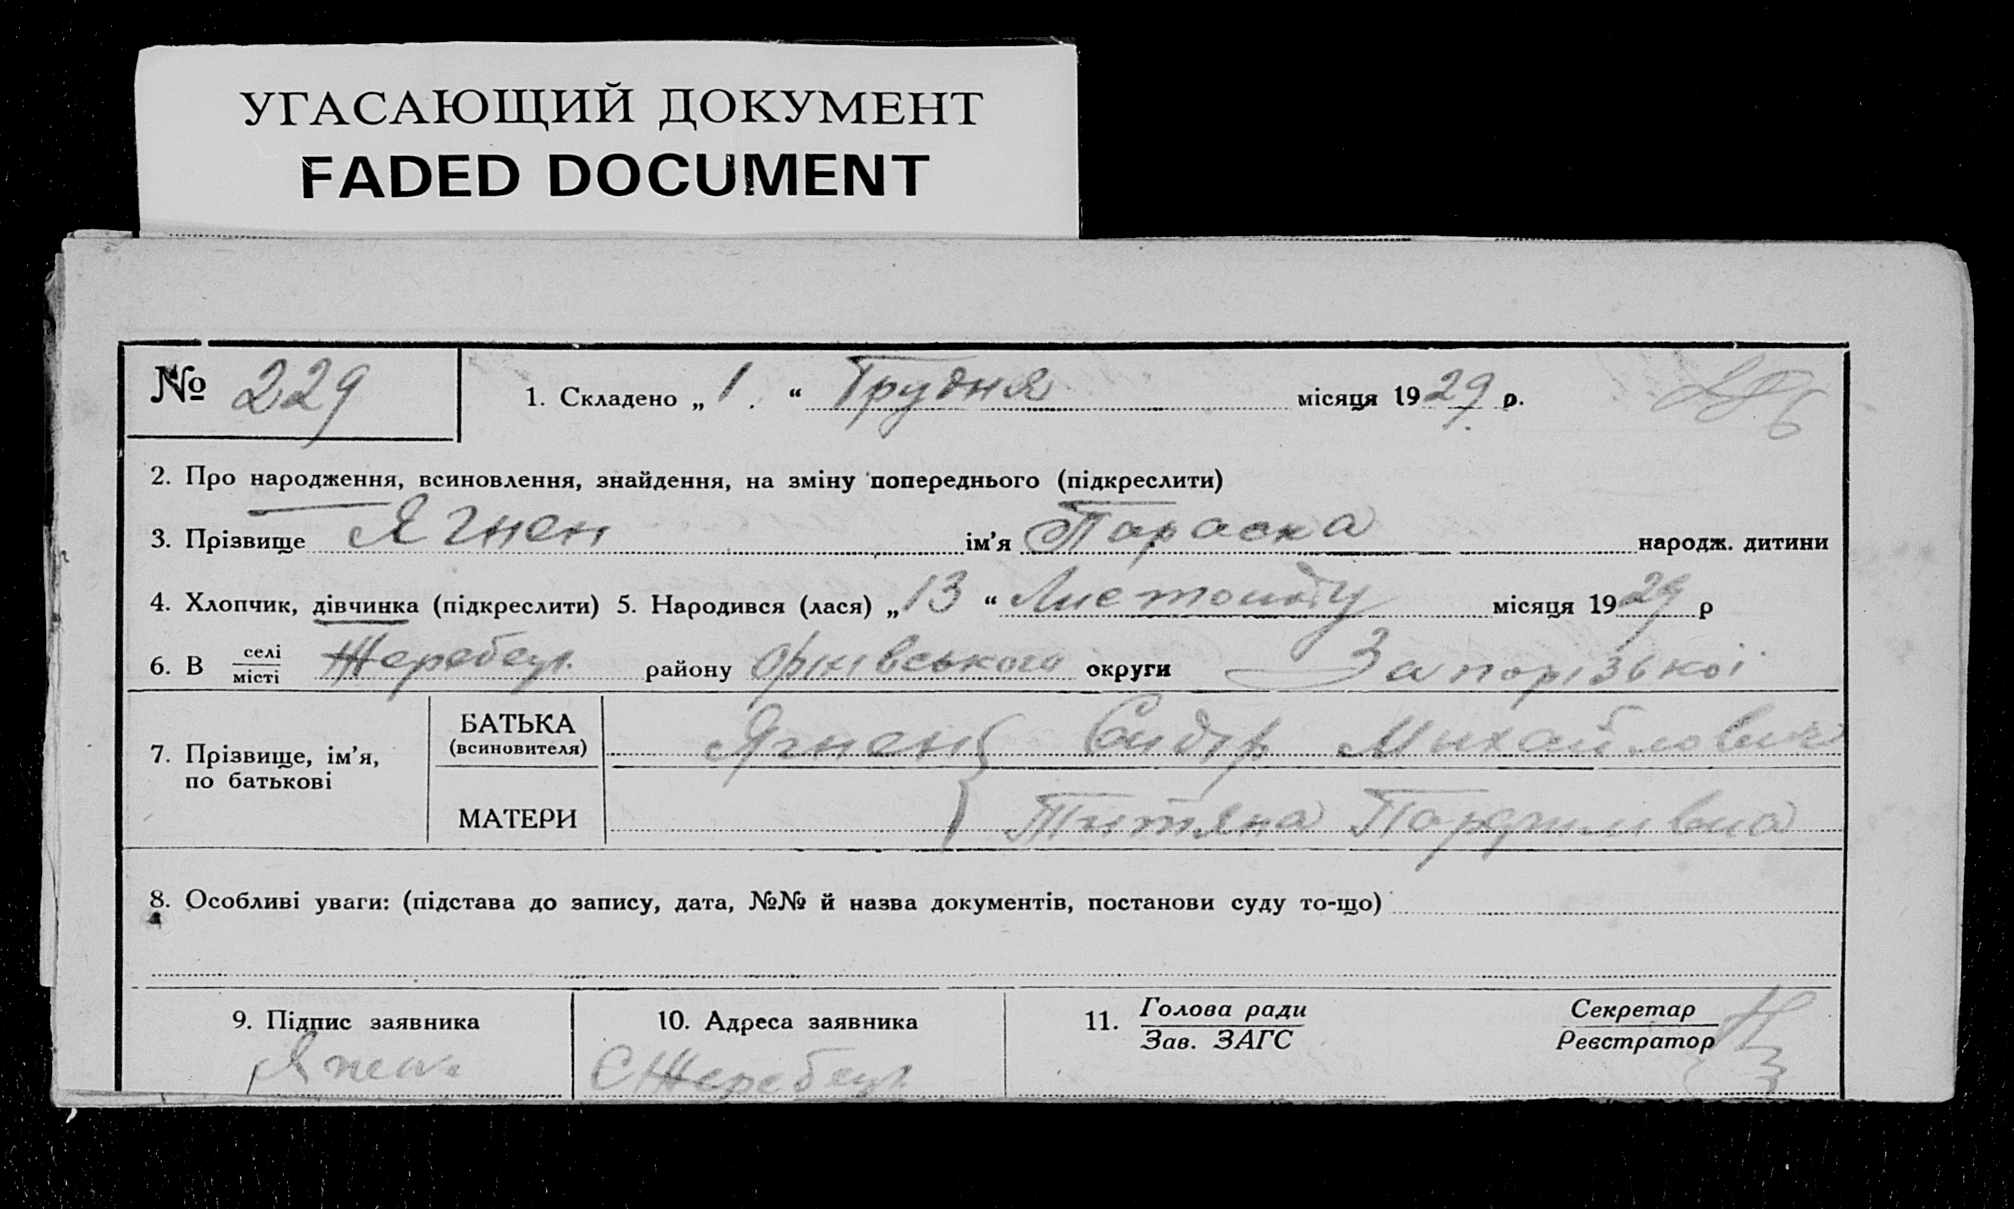 УГАСАЮЩИЙ ДОКУМЕНТ
FADED DOCUMENT
№ 229 1. Складено „ 1 . “ Грудня місяця 1929 р.
2. Про народження, всиновлення, знайдення, на зміну попереднього (підкреслити)
3. Прізвище Ягнен ім'я Параска народж. дитини
4. Хлопчик, дівчинка (підкреслити) 5. Народився (лася) „ 13 “ Листопаду місяця 1929 р
6. В селі / місті Жеребець району Оріхівського округи Запорізької
7. Прізвище, ім'я, по батькові
БАТЬКА (всиновителя) Ягнен Сидір Михайлович
МАТЕРИ Титяна Парфилівна
8. Особливі уваги: (підстава до запису, дата, №№ й назва документів, постанови суду то-що)
9. Підпис заявника 10. Адреса заявника 11. Голова ради / Зав. ЗАГС Секретар / Реєстратор
С Жеребець